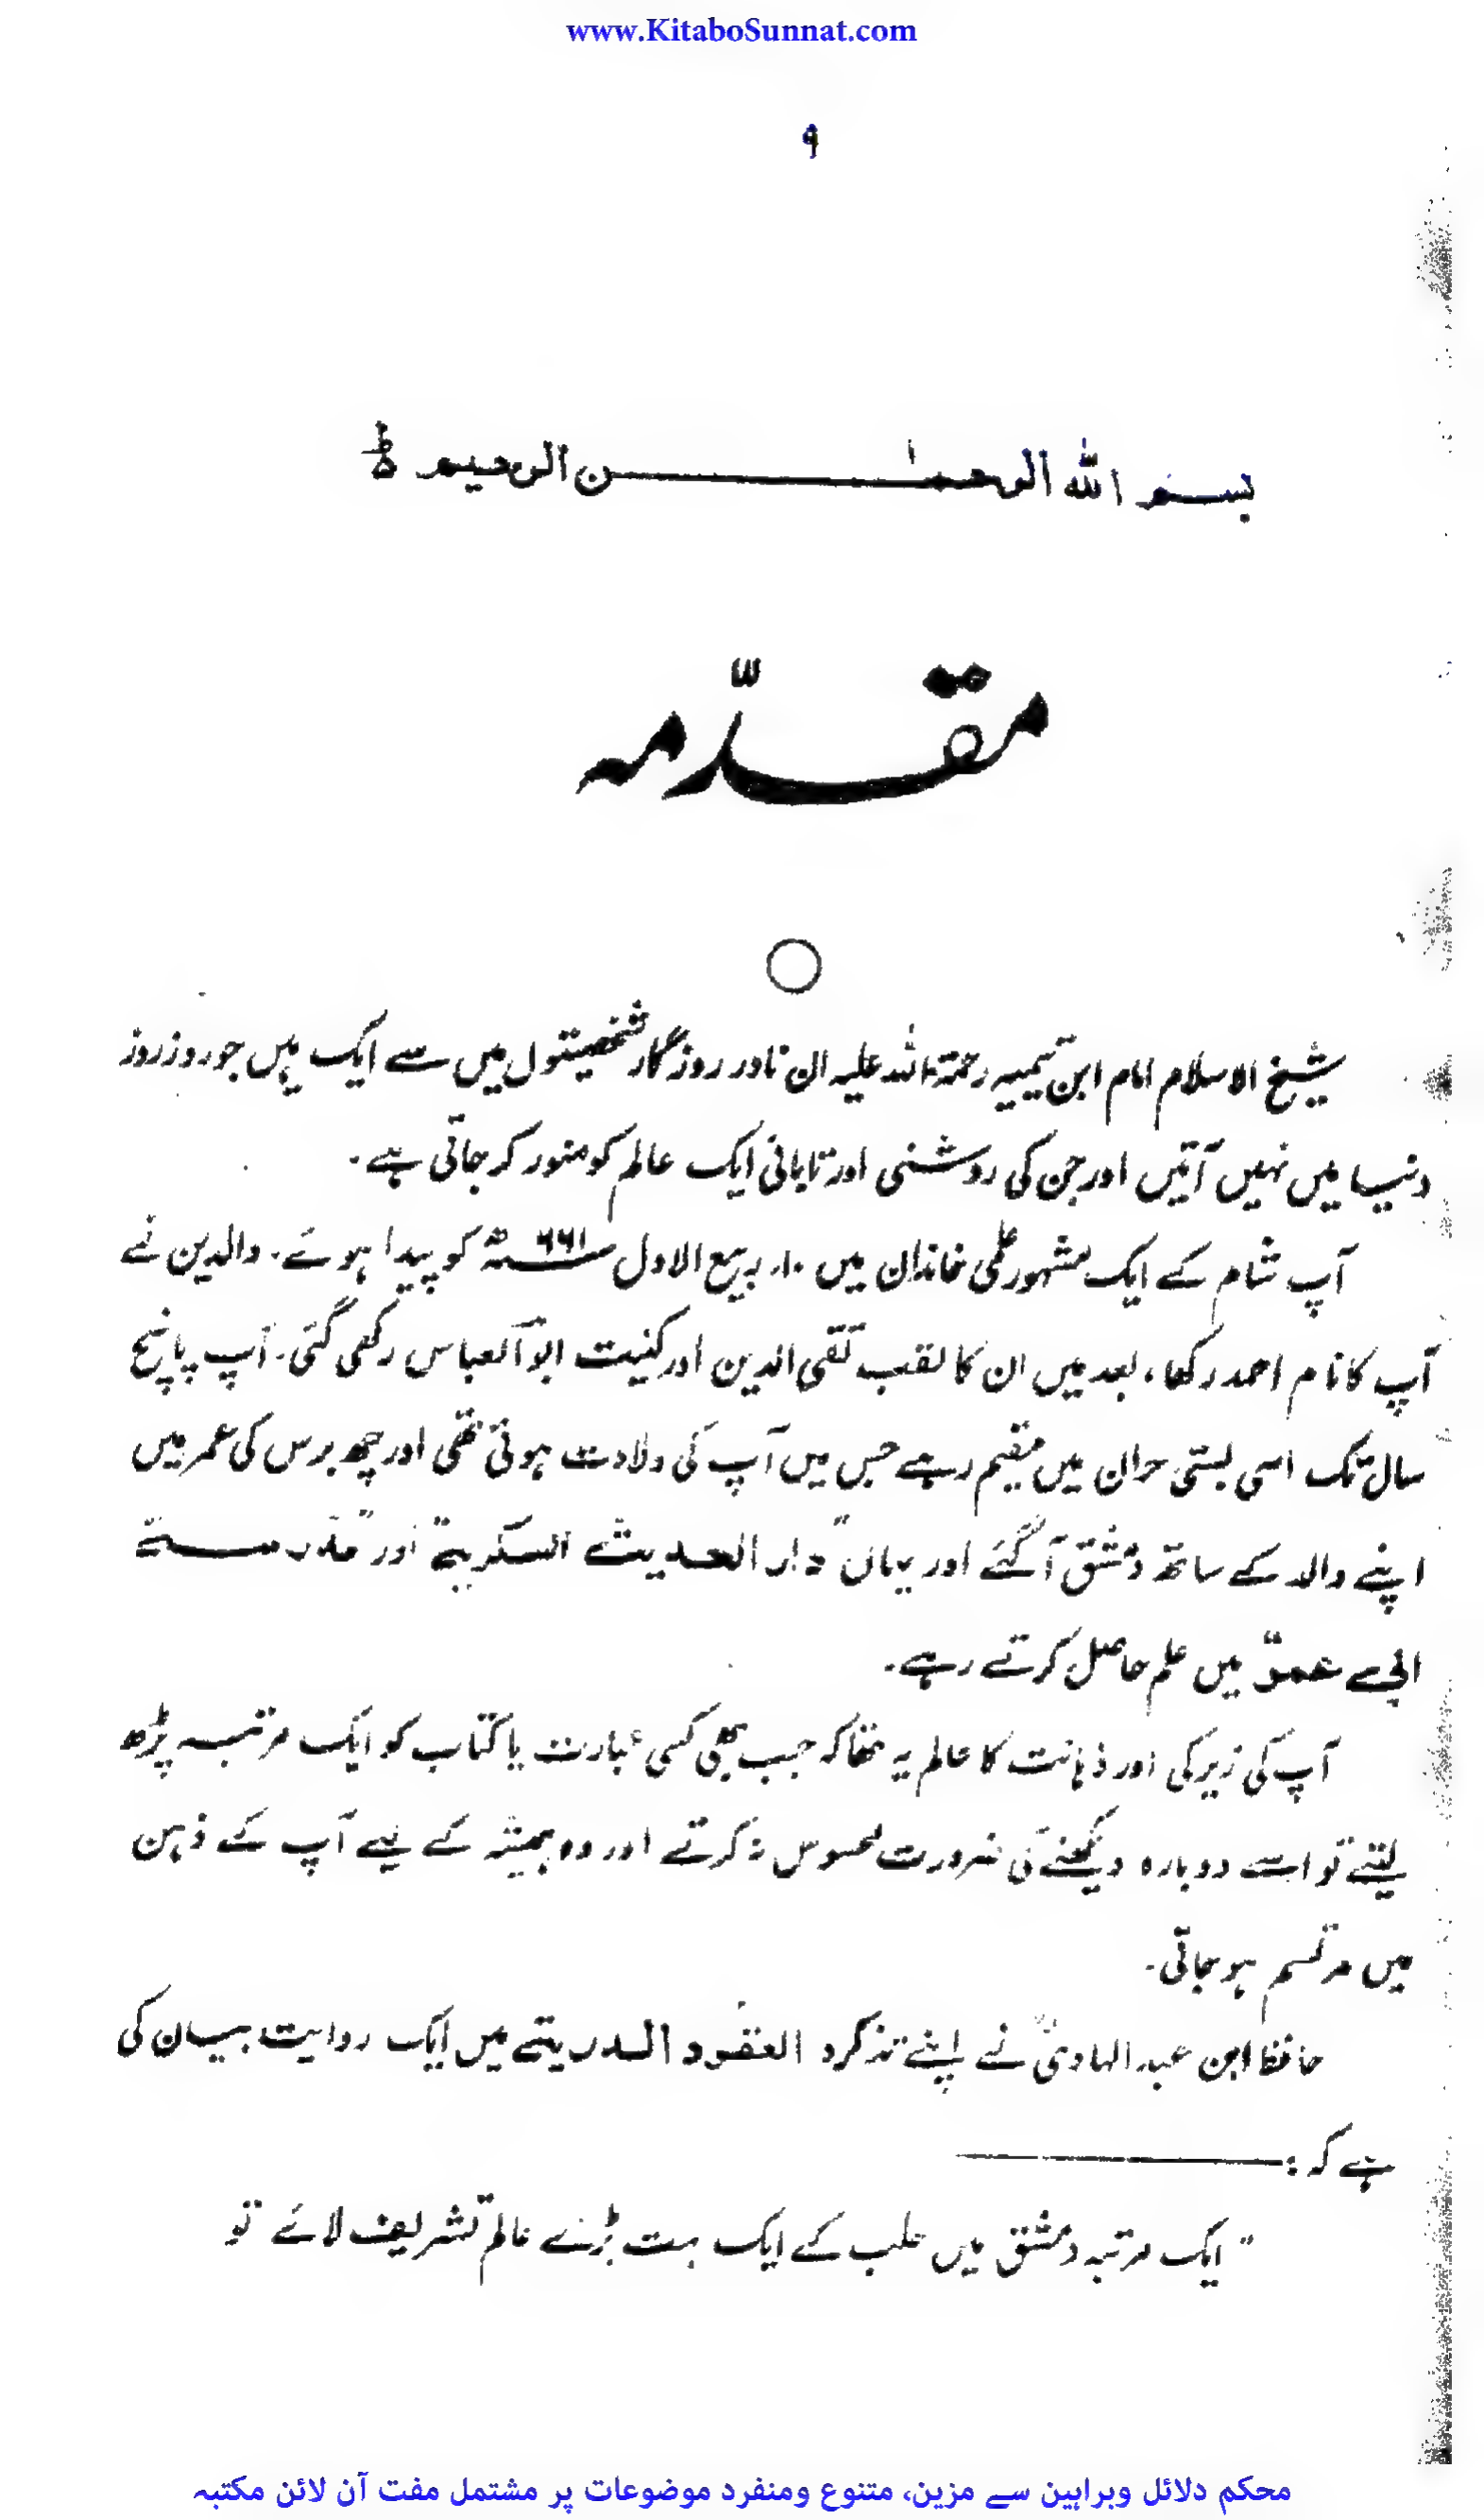 www.KitaboSunnat.com
۹
بسم اللہ الرحمٰن الرحیم ؕ
مقدّمہ
شیخ الاسلام امام ابن تیمیہ رحمۃ اللہ علیہ ان نادر روزگار شخصیتوں میں سے ایک ہیں جو روز روز
دنیا میں نہیں آتیں اور جن کی روشنی اور تابانی ایک عالم کو منور کر جاتی ہے۔
آپ شام کے ایک مشہور علمی خاندان میں ۱۰ ربیع الاول ۶۶۱ھ کو پیدا ہوئے۔ والدین نے
آپ کا نام احمد رکھا، بعد میں ان کا لقب تقی الدین اور کنیت ابو العباس رکھی گئی۔ آپ پانچ
سال تک اسی بستی حران میں مقیم رہے جس میں آپ کی ولادت ہوئی تھی اور چھ برس کی عمر میں
اپنے والد کے ساتھ دمشق آگئے اور یہاں "دار الحدیث السکریۃ" اور "مدرسۃ
ابی عمر" میں علم حاصل کرتے رہے۔
آپ کی زیرکی اور ذہانت کا عالم یہ تھا کہ جب بھی کسی عبارت یا کتاب کو ایک مرتبہ پڑھ
لیتے تو اسے دوبارہ دیکھنے کی ضرورت محسوس نہ کرتے اور وہ ہمیشہ کے لیے آپ کے ذہن
میں مرتسم ہو جاتی۔
حافظ ابن عبد الہادیؒ نے اپنے تذکرہ العقود الدریۃ میں ایک روایت بیان کی
ہے کہ :
" ایک مرتبہ دمشق میں حلب کے ایک بہت بڑے عالم تشریف لائے تو
محکم دلائل وبراہین سے مزین، متنوع ومنفرد موضوعات پر مشتمل مفت آن لائن مکتبہ